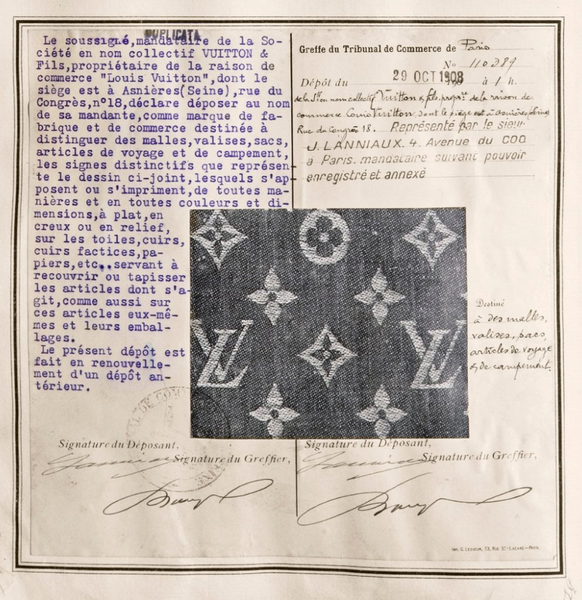 DUPLICATA
Le soussigné,mandataire de la So-
ciété en nom collectif VUITTON &
Fils,propriétaire de la raison de
commerce "Louis Vuitton",dont le
siège est à Asnières(Seine),rue du
Congrès,n°18,déclare déposer au nom
de sa mandante,comme marque de fa-
brique et de commerce destinée à
distinguer des malles,valises,sacs,
articles de voyage et de campement,
les signes distinctifs que représen-
te le dessin ci-joint,lesquels s'ap-
posent ou s'impriment,de toutes ma-
nières et en toutes couleurs et di-
mensions,à plat,en
creux ou en relief,
sur les toiles,cuirs,
cuirs factices,pa-
piers,etc.,servant à
recouvrir ou tapisser
les articles dont s'a-
git,comme aussi sur
ces articles eux-mê-
mes et leurs embal-
lages.
Le présent dépôt est
fait en renouvelle-
ment d'un dépôt an-
térieur.
Signature du Déposant,
Signature du Greffier,
Greffe du Tribunal de Commerce de Paris
N° 110284
Dépôt du 29 OCT 1908 à 1 h.
de la Sté en nom collectif Vuitton & fils, propre de la raison de
commerce Louis Vuitton dont le siège est à Asnières, Seine
Rue du Congrès 18. Représenté par le sieur
J. LANNIAUX. 4. Avenue du COQ
à Paris. mandataire suivant pouvoir
enregistré et annexé
LV
LV
Destiné
à des malles,
valises, sacs,
articles de voyage
& de campement.
Signature du Déposant,
Signature du Greffier,